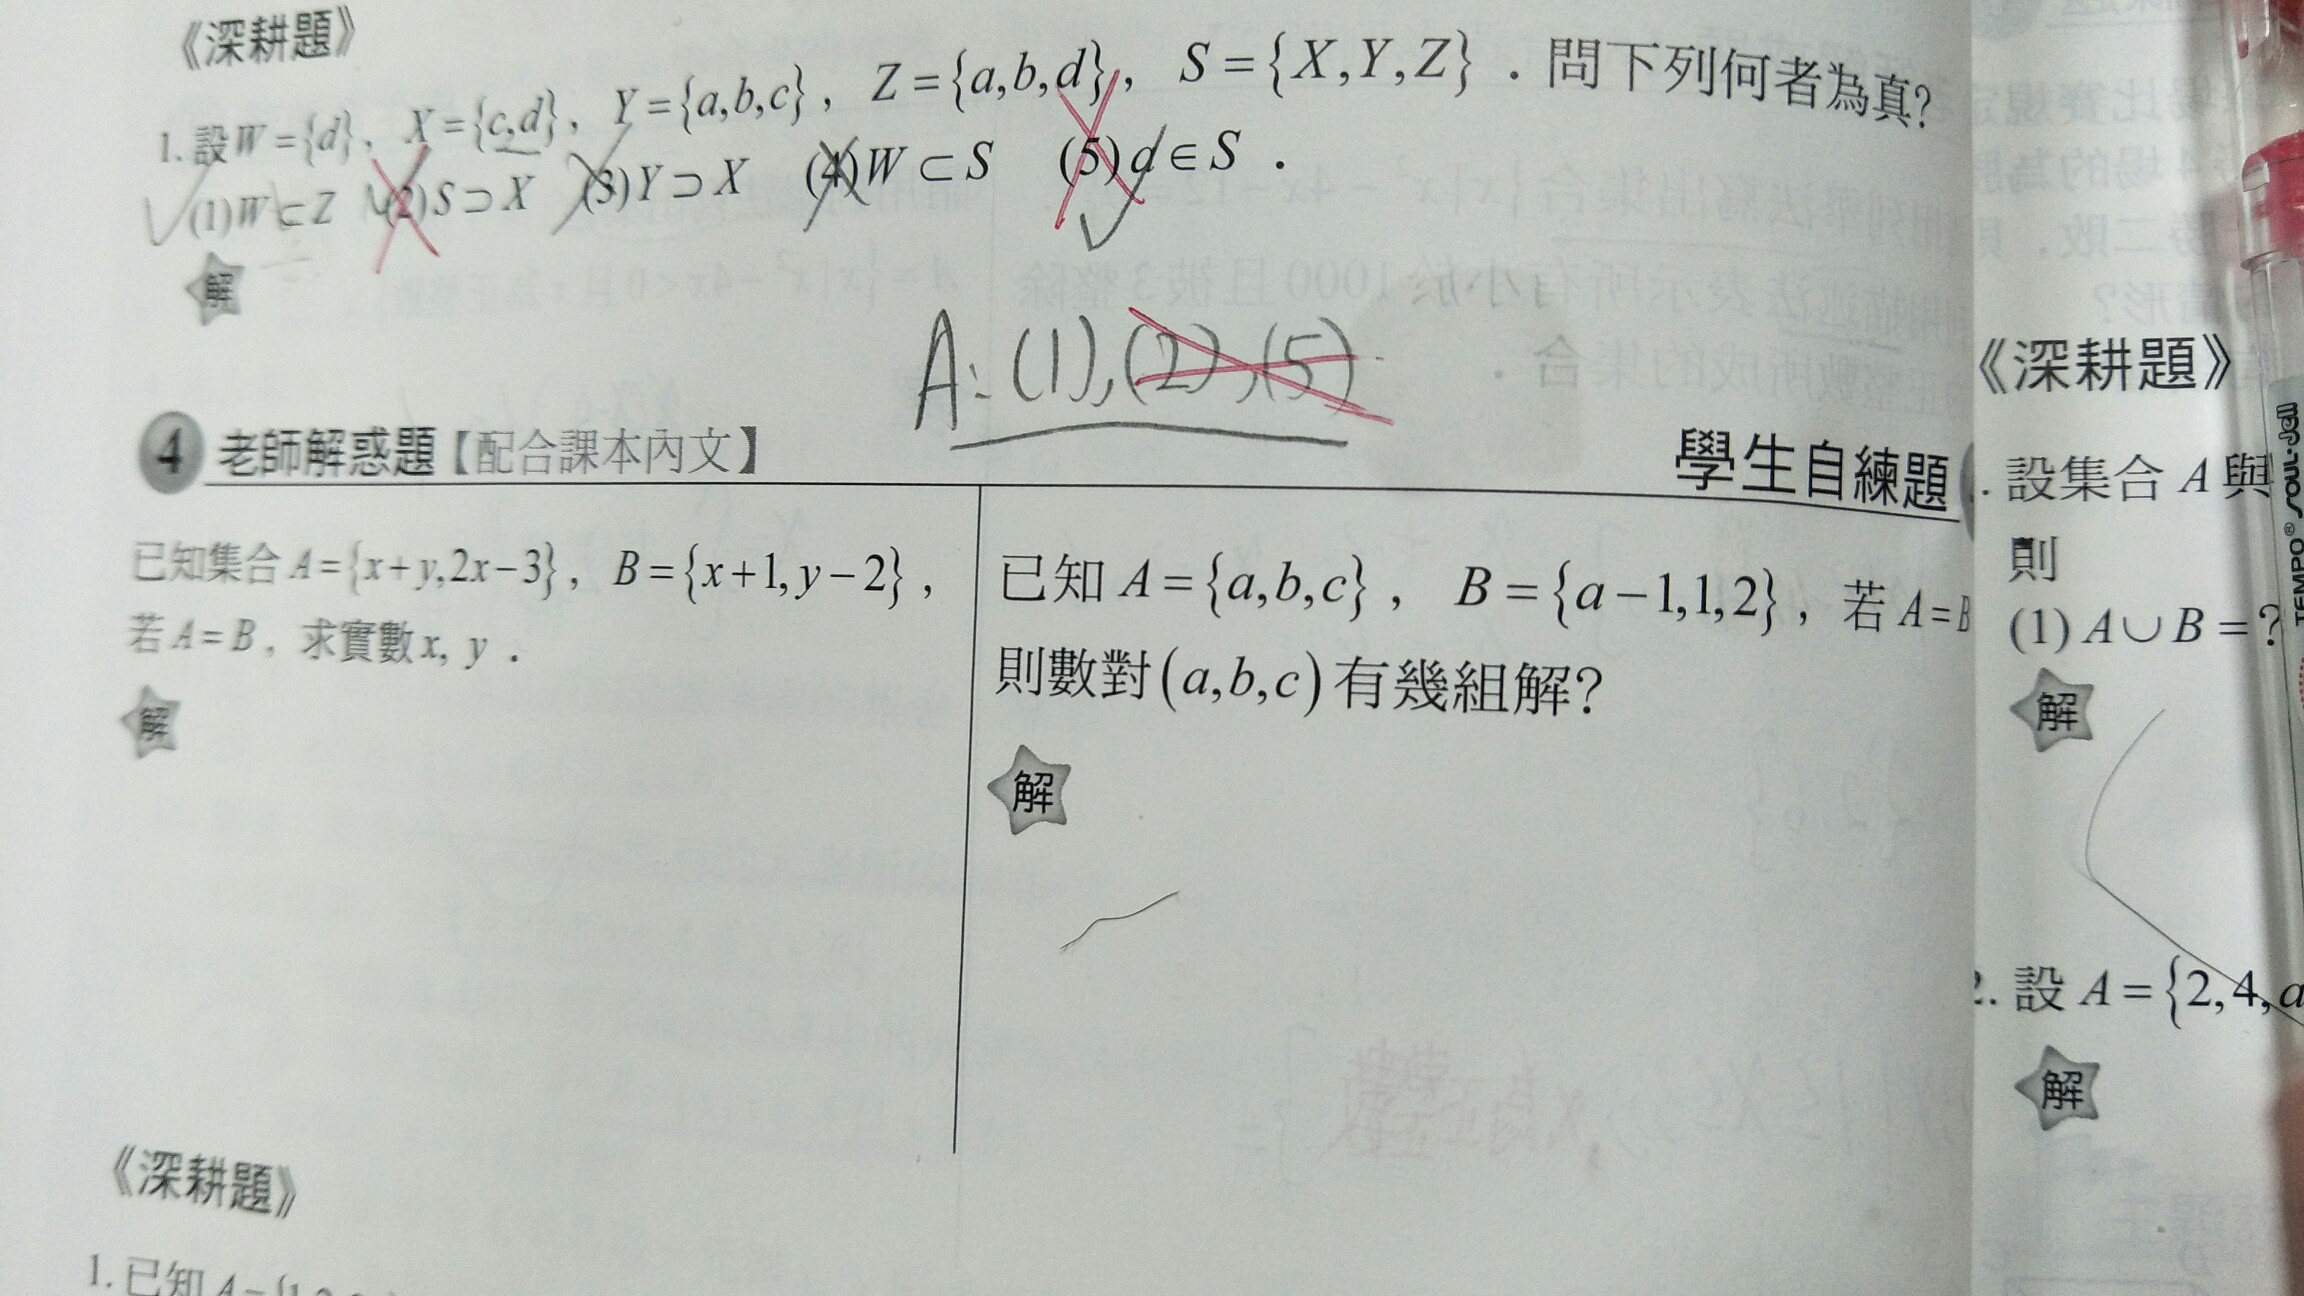 《深耕題》
1. 設W={d}, X={c,d}, Y={a,b,c}, Z={a,b,d}, S={X,Y,Z}．問下列何者為真?
(1)W⊂Z (2)S⊃X (3)Y⊃X (4)W⊂S (5)d∈S．
解
A:(1),(2),(5)
4 老師解惑題【配合課本內文】
學生自練題
已知集合A={x+y,2x−3}, B={x+1,y−2},
若A=B, 求實數x, y．
解
已知A={a,b,c}, B={a−1,1,2}, 若A=B
則數對(a,b,c)有幾組解?
解
《深耕題》
1. 已知
《深耕題》
. 設集合A與
則
(1) A∪B=?
解
2. 設A={2,4,a
解
TEMPO® SOUL·Jell